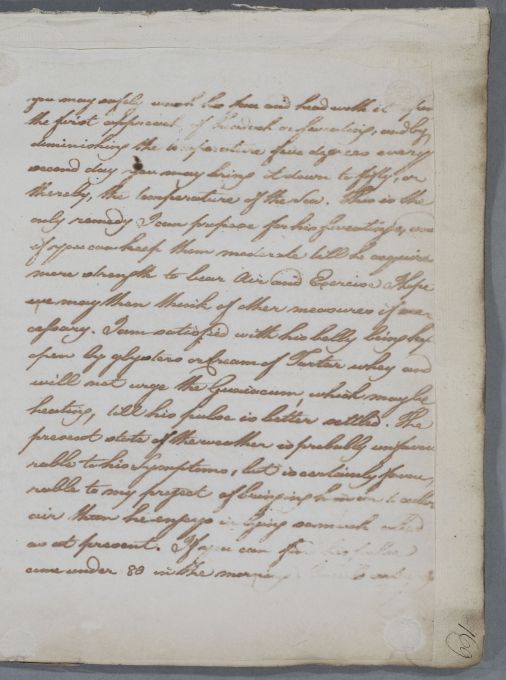 you may safely wash his face and head with it
the first approach of headach or sweating, and by
diminishing the temperature five degrees every
second day you may bring it down to fifty, or
thereby, the temperature of the Sea. This is the
only remedy I can propose for his sweatings, and
if you can keep them moderate till he acquire
more strength to bear Air and Exercise I hope
we may then think of other measures if nee
cessary. I am satisfied with his belly being kept
open by glysters or Cream of Tartar whey and
will not urge the Guaiacum, which may be
heating, till his pulse is better settled. The
present state of the weather is probably unfavou
rable to his Symptoms, but is certainly favou
rable to my project of bringing him to
air than he enjoys in lying so much
as at present. If you can
come under 88 in the morning
169